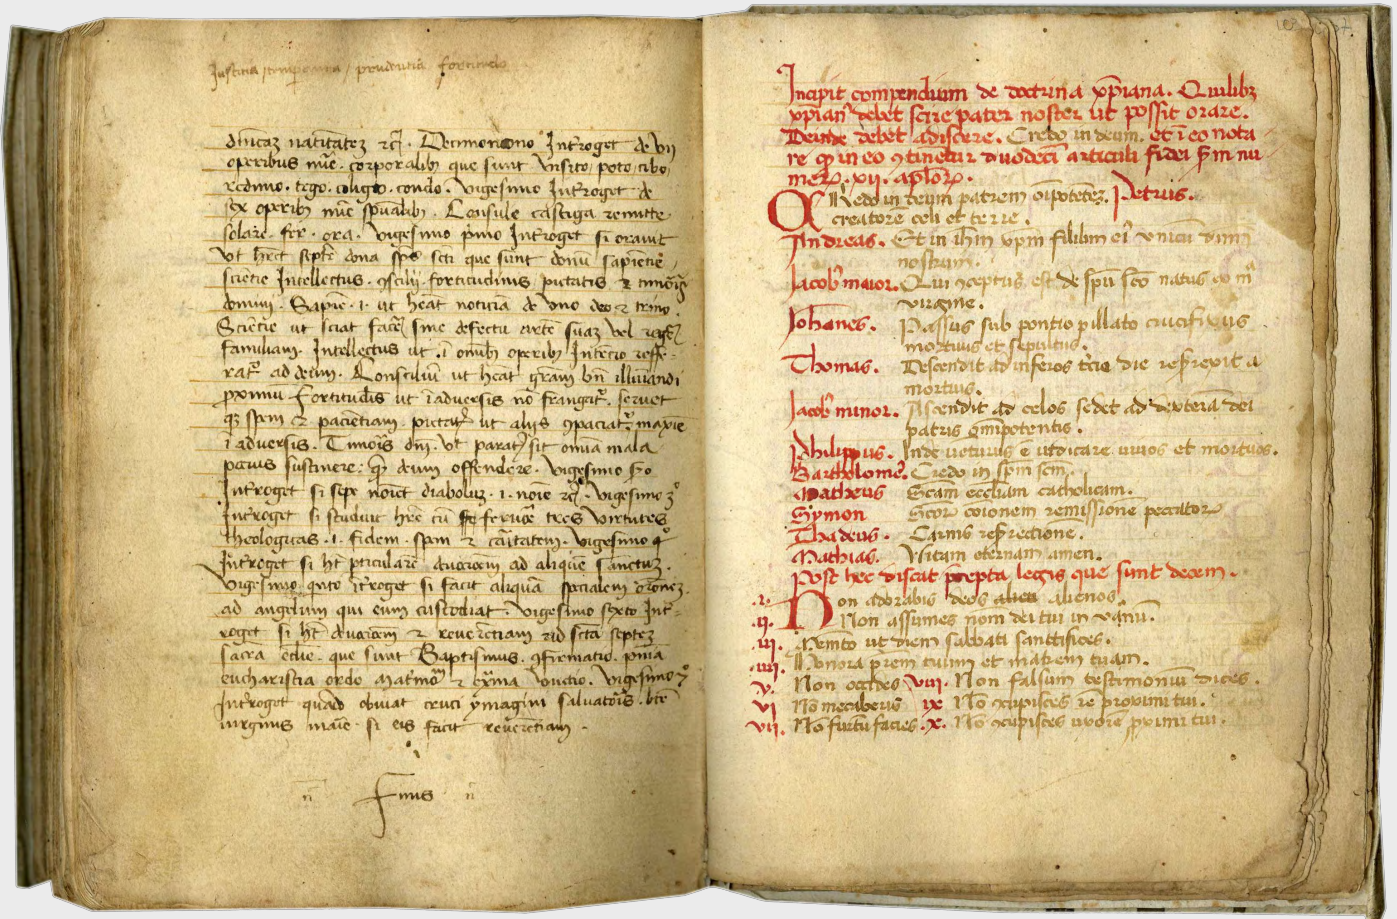 Justicia temperancia prudentia fortitudo
diuicaz natiuitatez rcͥ. Decimonono Introget de vij
operibus mīe corporalibꝫ que sunt visito, poto, cibo,
redimo. tego. coligo. condo. vigesimo Introget de
sex operibꝫ mīe spūalibꝫ. Consule castiga remitte
solare. fer. ora. vigesimo p̄mo Introget si orauit
vt hret septē dona sp̄s scti que sunt donū sapiētie,
sciētie Intellectus. ꝯsilij. fortitudinis pietatis ⁊ timoris
domini. Sapiē. i. ut heat noticiā de vno deo ⁊ trino.
Sciētie ut sciat facē sine defectu arte suaz vel regē
familiam. Intellectus ut .ī omībꝫ operibꝫ Intētio reffe-
ratᷣ ad deum. Consciliū ut heat grām bn̄ illuīandi
proximū Fortitudīs ut ī aduersis nō frangatᷣ. seruet
qꝫ spem ⁊ pacientiam. pietatꝭ ut aliis ꝯpaciatᷣ maxīe
ī aduersis. Timoris dn̄i. vt paratꝰ sit omīa mala
potius sustinere: qꝫ deum offendere. vigesimo sc̄do
Introget si sepe noīet diabolum. i. noīe rcͥ. vigesimo 3º
Introget si studuit hrē cū feruore tres virtutes
theologicas. i. fidem. spem ⁊ caritatem. vigesimo 4º
Introget si ht pticularē deuocionem ad aliquē sanctum.
vigesimo. quīto ītroget si facit aliquā specialem orōnez
ad angelum qui eum custodiat. vigesimo sexto Int-
roget si ht deuocionē ⁊ reuerētiam ad sctā septez
sacra ecclie. que sunt Baptismus. ꝯfirmatio. pnīa
eucharistia ordo matrimoniū ⁊ extrema vnctio. vigesimo 7º
Introget quādo obuiat cruci ymagini saluatoris. bte
virginis marie si eis facit reuerētiam.
Finis
Incipit compendium de doctrina xp̄iana. Quilibꝫ
xp̄ianꝰ debet scire pater noster ut possit orare.
Deinde debet adiscere. Credo in deum. et ī eo nota
re qꝫ in eo ꝯtinetur duodeci articuli fidei sc̄dm nu
meꝝ. xii. apl̄oꝝ.
Credo in deum patrem oīpotētez. Petrus.
creatorē celi et terre.
Andreas. Et in ihm xpm filium eiꝰ vnicū dnm̄
nostrum.
Jacobꝰ maior. Qui ꝯceptus est de spū scō natus ex mᵃ
virgine.
Johanēs. Passus sub pontio pillato crucifixus
mortuus et sepultus.
Thomas. Descendit ad inferos tcia die resurexit a
mortuis.
Jacobꝰ minor. Ascendit ad celos sedet ad dexterā dei
patris omipotentis.
Philippus. Inde vēturus ē iudicare viuos et mortuos.
Bartholomeꝰ. Credo in spm scm.
Matheus Scam eccliam catholicam.
Symon Scoꝝ coionem remissionē peccatoꝝ
Thadeus. Carnis resurectionē.
Mathias. Vitam eternam amen.
Post hec discat p̄cepta legis que sunt decem.
.i. Non adorabis deos alienos.
.ii. Non assumes nom dei tui in vanū.
.iii. Memto ut diem sabbati sanctifices.
.iiii. Honora prem tuum et matrem tuam.
v. Non occides viii. Non falsum testimoniū dices.
vi Nō mecaberis ix Nō ꝯcupisces rē proximi tui.
vii. Nō furtū facies .x. Nō ꝯcupisces uxorē proximi tui.